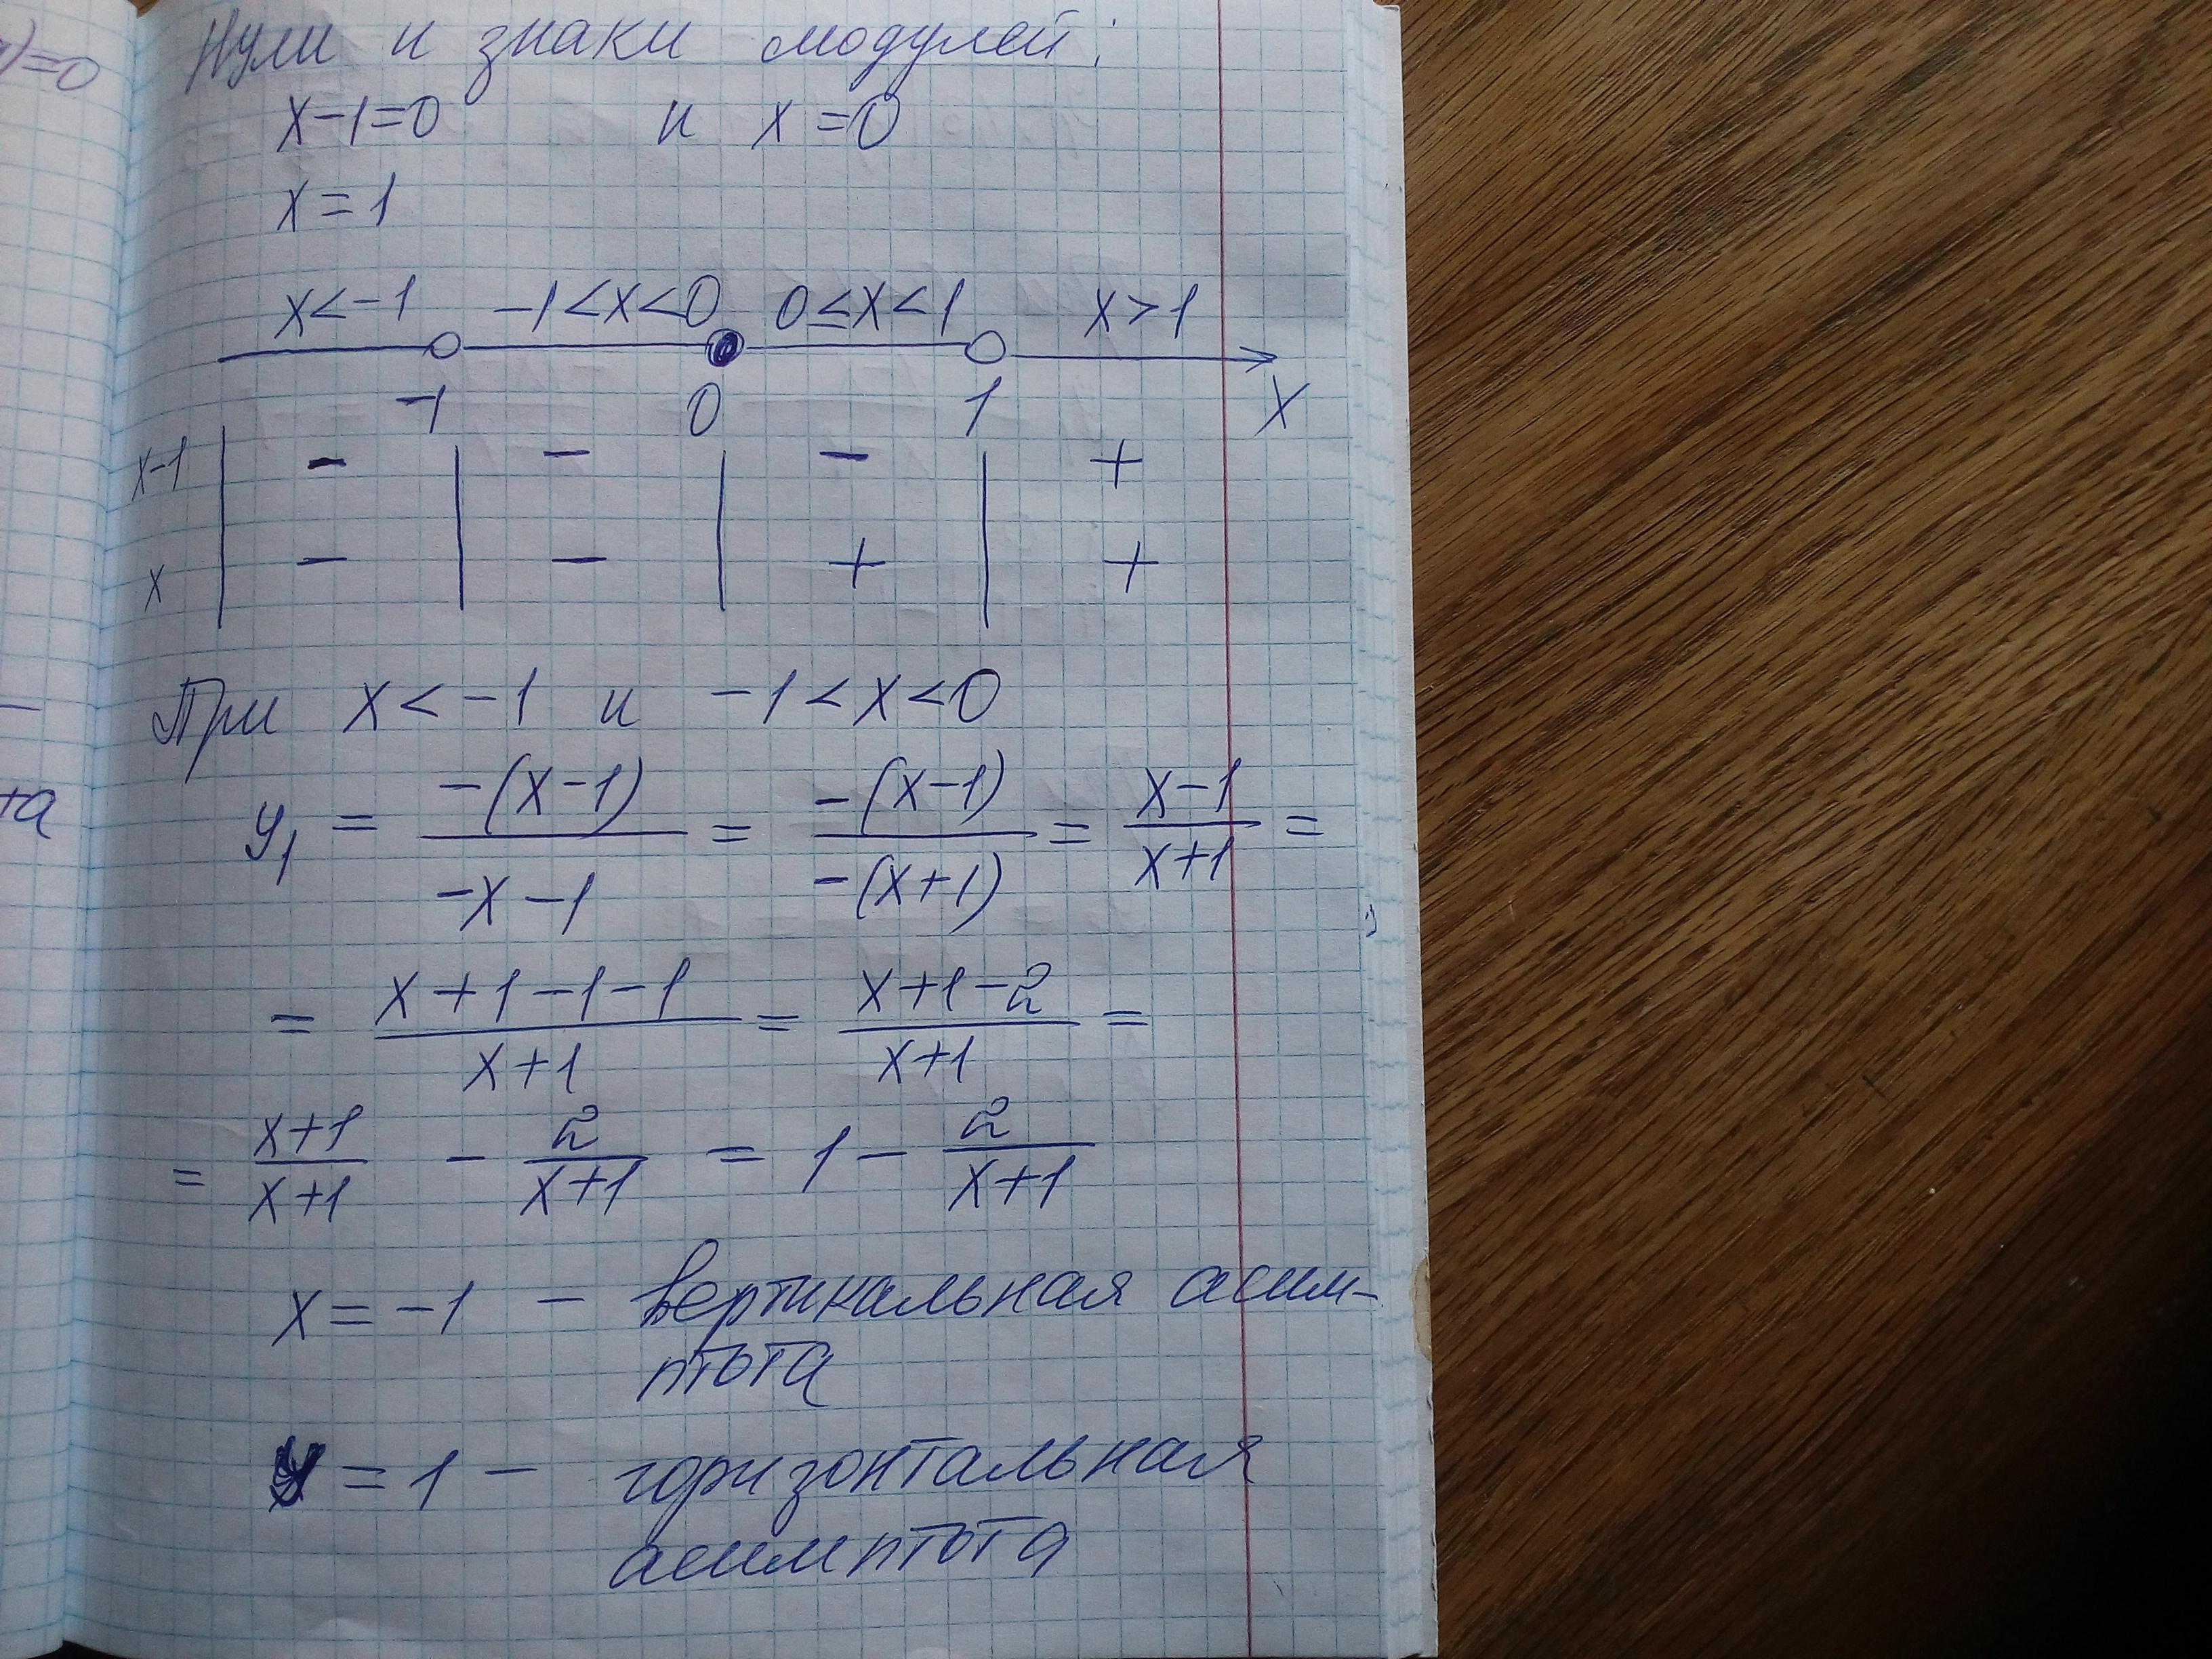 )=0
Нули и знаки модулей:
x-1=0 и x=0
x=1
x<-1 -1<x<0 0≤x<1 x>1
-1 0 1 X
x-1 - - - +
x - - + +
При x<-1 и -1<x<0
y₁ = -(x-1)/-x-1 = -(x-1)/-(x+1) = x-1/x+1 =
= x+1-1-1/x+1 = x+1-2/x+1 =
= x+1/x+1 - 2/x+1 = 1 - 2/x+1
x=-1 - вертикальная асим-
птота
y=1 - горизонтальная
асимптота
та